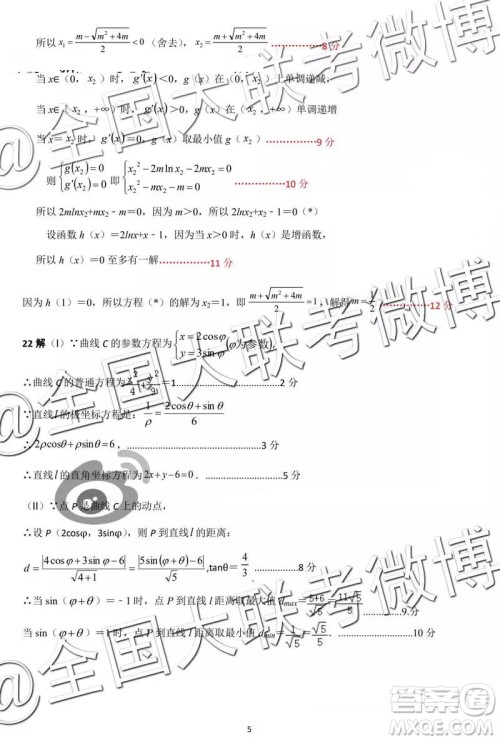 所以 x₁=(m-√(m²+4m))/2<0 (舍去), x₂=(m+√(m²+4m))/2 ……………8分
当 x∈(0, x₂)时, g′(x)<0, g(x)在(0, x₂)上单调递减;
当 x∈(x₂, +∞)时, g′(x)>0, g(x)在(x₂, +∞)上单调递增
当 x=x₂时, g′(x₂)=0, g(x)取最小值 g(x₂) ……………9分
则{g(x₂)=0 g′(x₂)=0 即{x₂²-2mlnx₂-2mx₂=0 x₂²-mx₂-m=0 ……………10分
所以 2mlnx₂+mx₂-m=0, 因为 m>0, 所以 2lnx₂+x₂-1=0 (*)
设函数 h(x)=2lnx+x-1, 因为当 x>0时, h(x)是增函数,
所以 h(x)=0至多有一解……………11分
因为 h(1)=0, 所以方程(*)的解为 x₂=1, 即 (m+√(m²+4m))/2=1, 解得 m=1/2 ……………12分
22 解(I)∵曲线 C 的参数方程为{x=2cosφ y=3sinφ (φ为参数),
∴曲线 C 的普通方程为 x²/4+y²/9=1……………2分
∵直线 l 的极坐标方程是: 1/ρ=(2cosθ+sinθ)/6
∴2ρcosθ+ρsinθ=6. ……………3分
∴直线 l 的直角坐标方程为 2x+y-6=0. ……………5分
(II)∵点 P 是曲线 C 上的动点,
∴设 P(2cosφ, 3sinφ), 则 P 到直线 l 的距离:
d=|4cosφ+3sinφ-6|/√(4+1)=|5sin(φ+θ)-6|/√5, tanθ=4/3 ……………8分
∴当 sin(φ+θ)=-1时, 点 P 到直线 l 距离取最大值 dmax=(5+6)/√5=11√5/5 ……………9分
当 sin(φ+θ)=1时, 点 P 到直线 l 距离取最小值 dmin=1/√5=√5/5. ……………10分
5
@全国大联考微博
@全国大联考微博
@全国大联考微博
答案圈
MXQE.COM